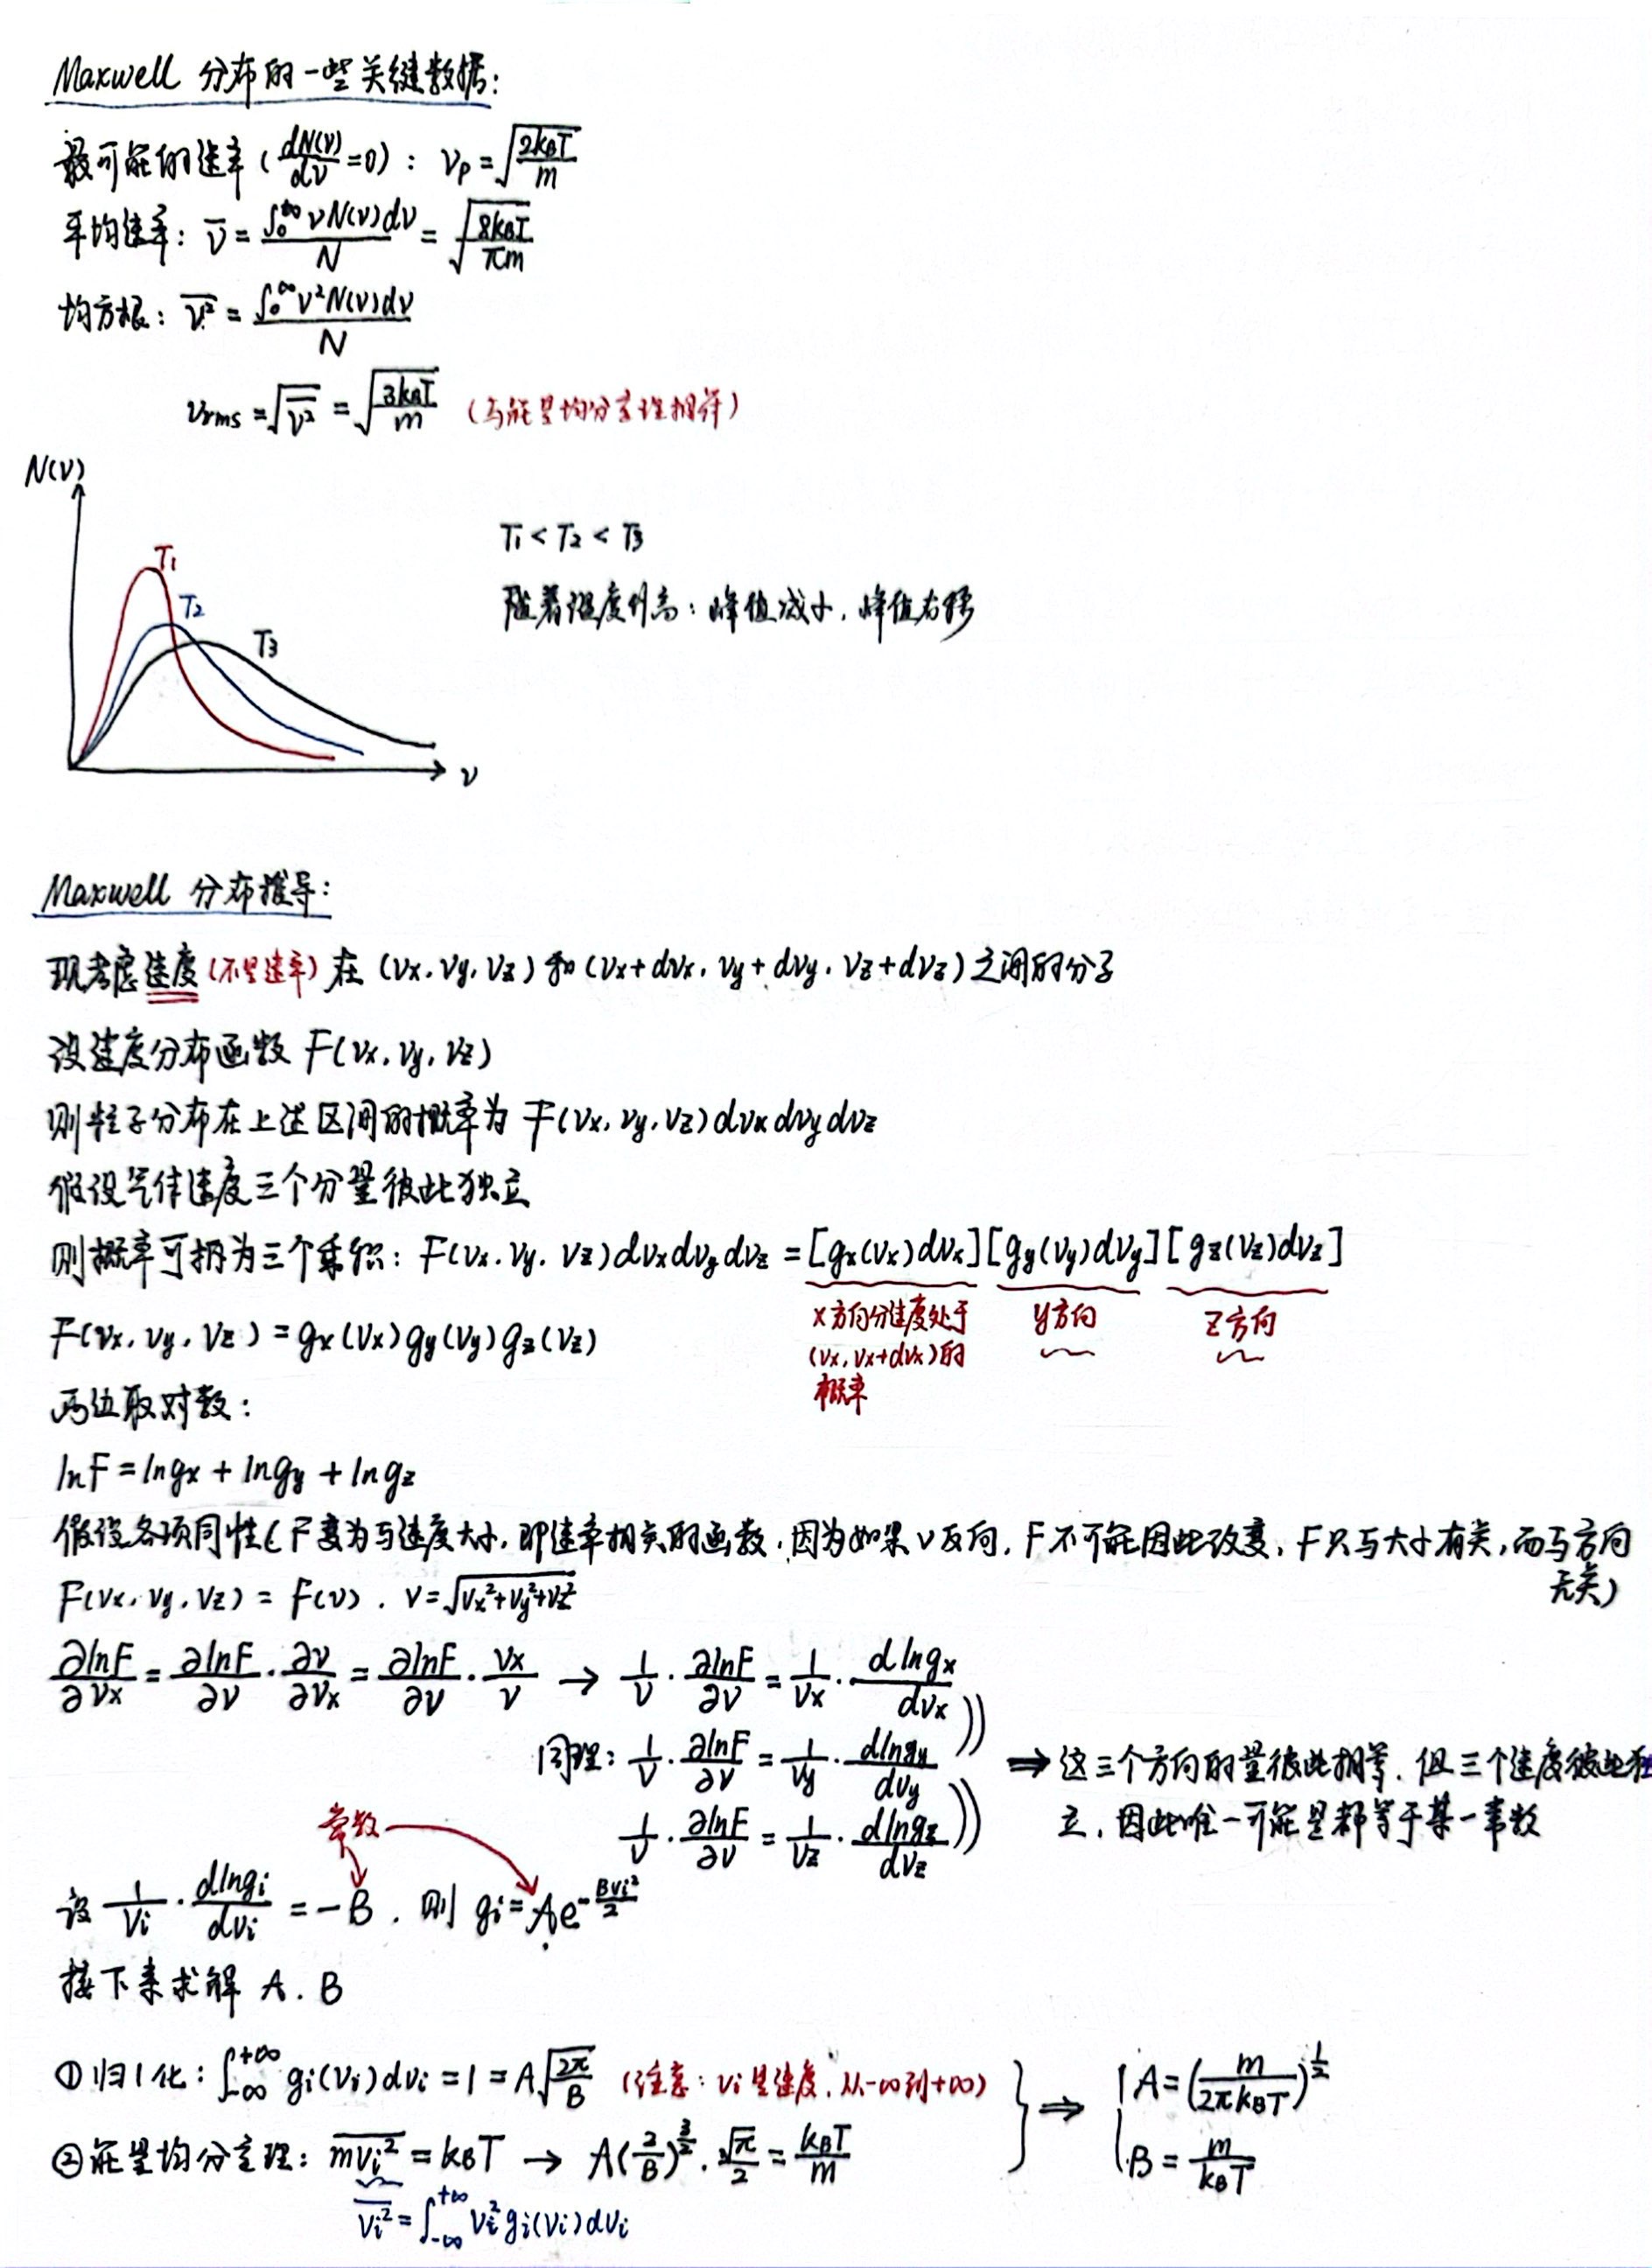 Maxwell 分布的一些关键数据：
最可能的速率（dN(v)/dv=0）：v_p=√(2k_BT/m)
平均速率：v̄=∫₀^{+∞}vN(v)dv/N=√(8k_BT/πm)
均方根：\overline{v²}=∫₀^∞v²N(v)dv/N
v_rms=√\overline{v²}=√(3k_BT/m)（与能量均分定理相符）
N(v)
T₁
T₂
T₃
v
T₁<T₂<T₃
随着温度升高：峰值减小，峰值右移
Maxwell 分布推导：
现考虑速度（不是速率）在 (vx, vy, vz) 和 (vx+dvx, vy+dvy, vz+dvz) 之间的分子
设速度分布函数 F(vx, vy, vz)
则粒子分布在上述区间的概率为 F(vx, vy, vz)dvxdvydvz
假设气体速度三个分量彼此独立
则概率可拆为三个乘积：F(vx, vy, vz)dvxdvydvz=[gx(vx)dvx][gy(vy)dvy][gz(vz)dvz]
x方向分速度处于
(vx, vx+dvx)的
概率
y方向
z方向
F(vx, vy, vz)=gx(vx)gy(vy)gz(vz)
两边取对数：
lnF=lngx+lngy+lngz
假设各项同性（F变为与速度大小，即速率相关的函数，因为如果v反向，F不可能因此改变，F只与大小有关，而与方向
无关）
F(vx, vy, vz)=F(v)，v=√(vx²+vy²+vz²)
∂lnF/∂vx=∂lnF/∂v·∂v/∂vx=∂lnF/∂v·vx/v → 1/v·∂lnF/∂v=1/vx·dlngx/dvx
同理：1/v·∂lnF/∂v=1/vy·dlngy/dvy
1/v·∂lnF/∂v=1/vz·dlngz/dvz
⇒ 这三个方向的量彼此相等，但三个速度彼此独
立，因此唯一可能是都等于某一常数
常数
设 1/vi·dlngi/dvi=-B，则 gi=Ae^{-Bvi²/2}
接下来求解 A, B
①归1化：∫_{-∞}^{+∞}gi(vi)dvi=1=A√(2π/B)（注意：vi是速度，从-∞到+∞）
②能量均分定理：\overline{mvi²}=k_BT → A(2/B)^{3/2}·√π/2=k_BT/m
\overline{vi²}=∫_{-∞}^{+∞}vi²gi(vi)dvi
⇒ A=(m/2πk_BT)^{1/2}
B=m/k_BT